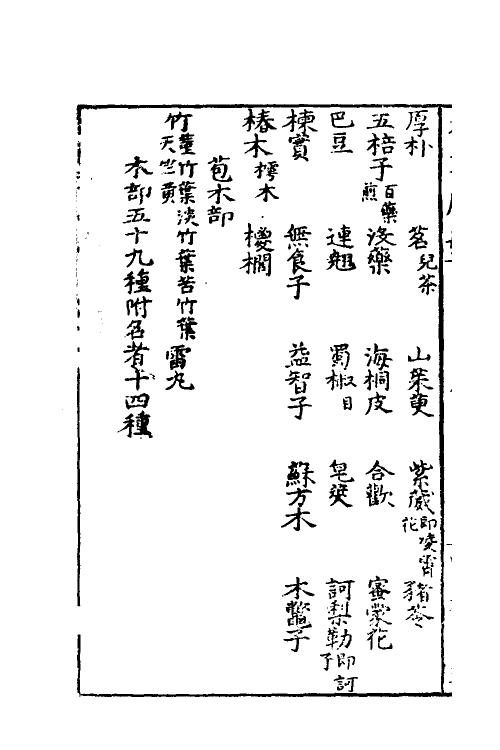 厚朴　茗兒茶　山茱萸　紫葳即凌霄花　豬苓
五棓子百藥煎　沒藥　海桐皮　合歡　蜜蒙花
巴豆　連翹　蜀椒目　皂莢　訶梨勒即訶子
楝實　無食子　益智子　蘇方木　木鼈子
椿木樗木　椶櫚
苞木部
竹葉菫竹葉淡竹葉苦竹葉天竺黄　雷丸
木部五十九種附名者十四種